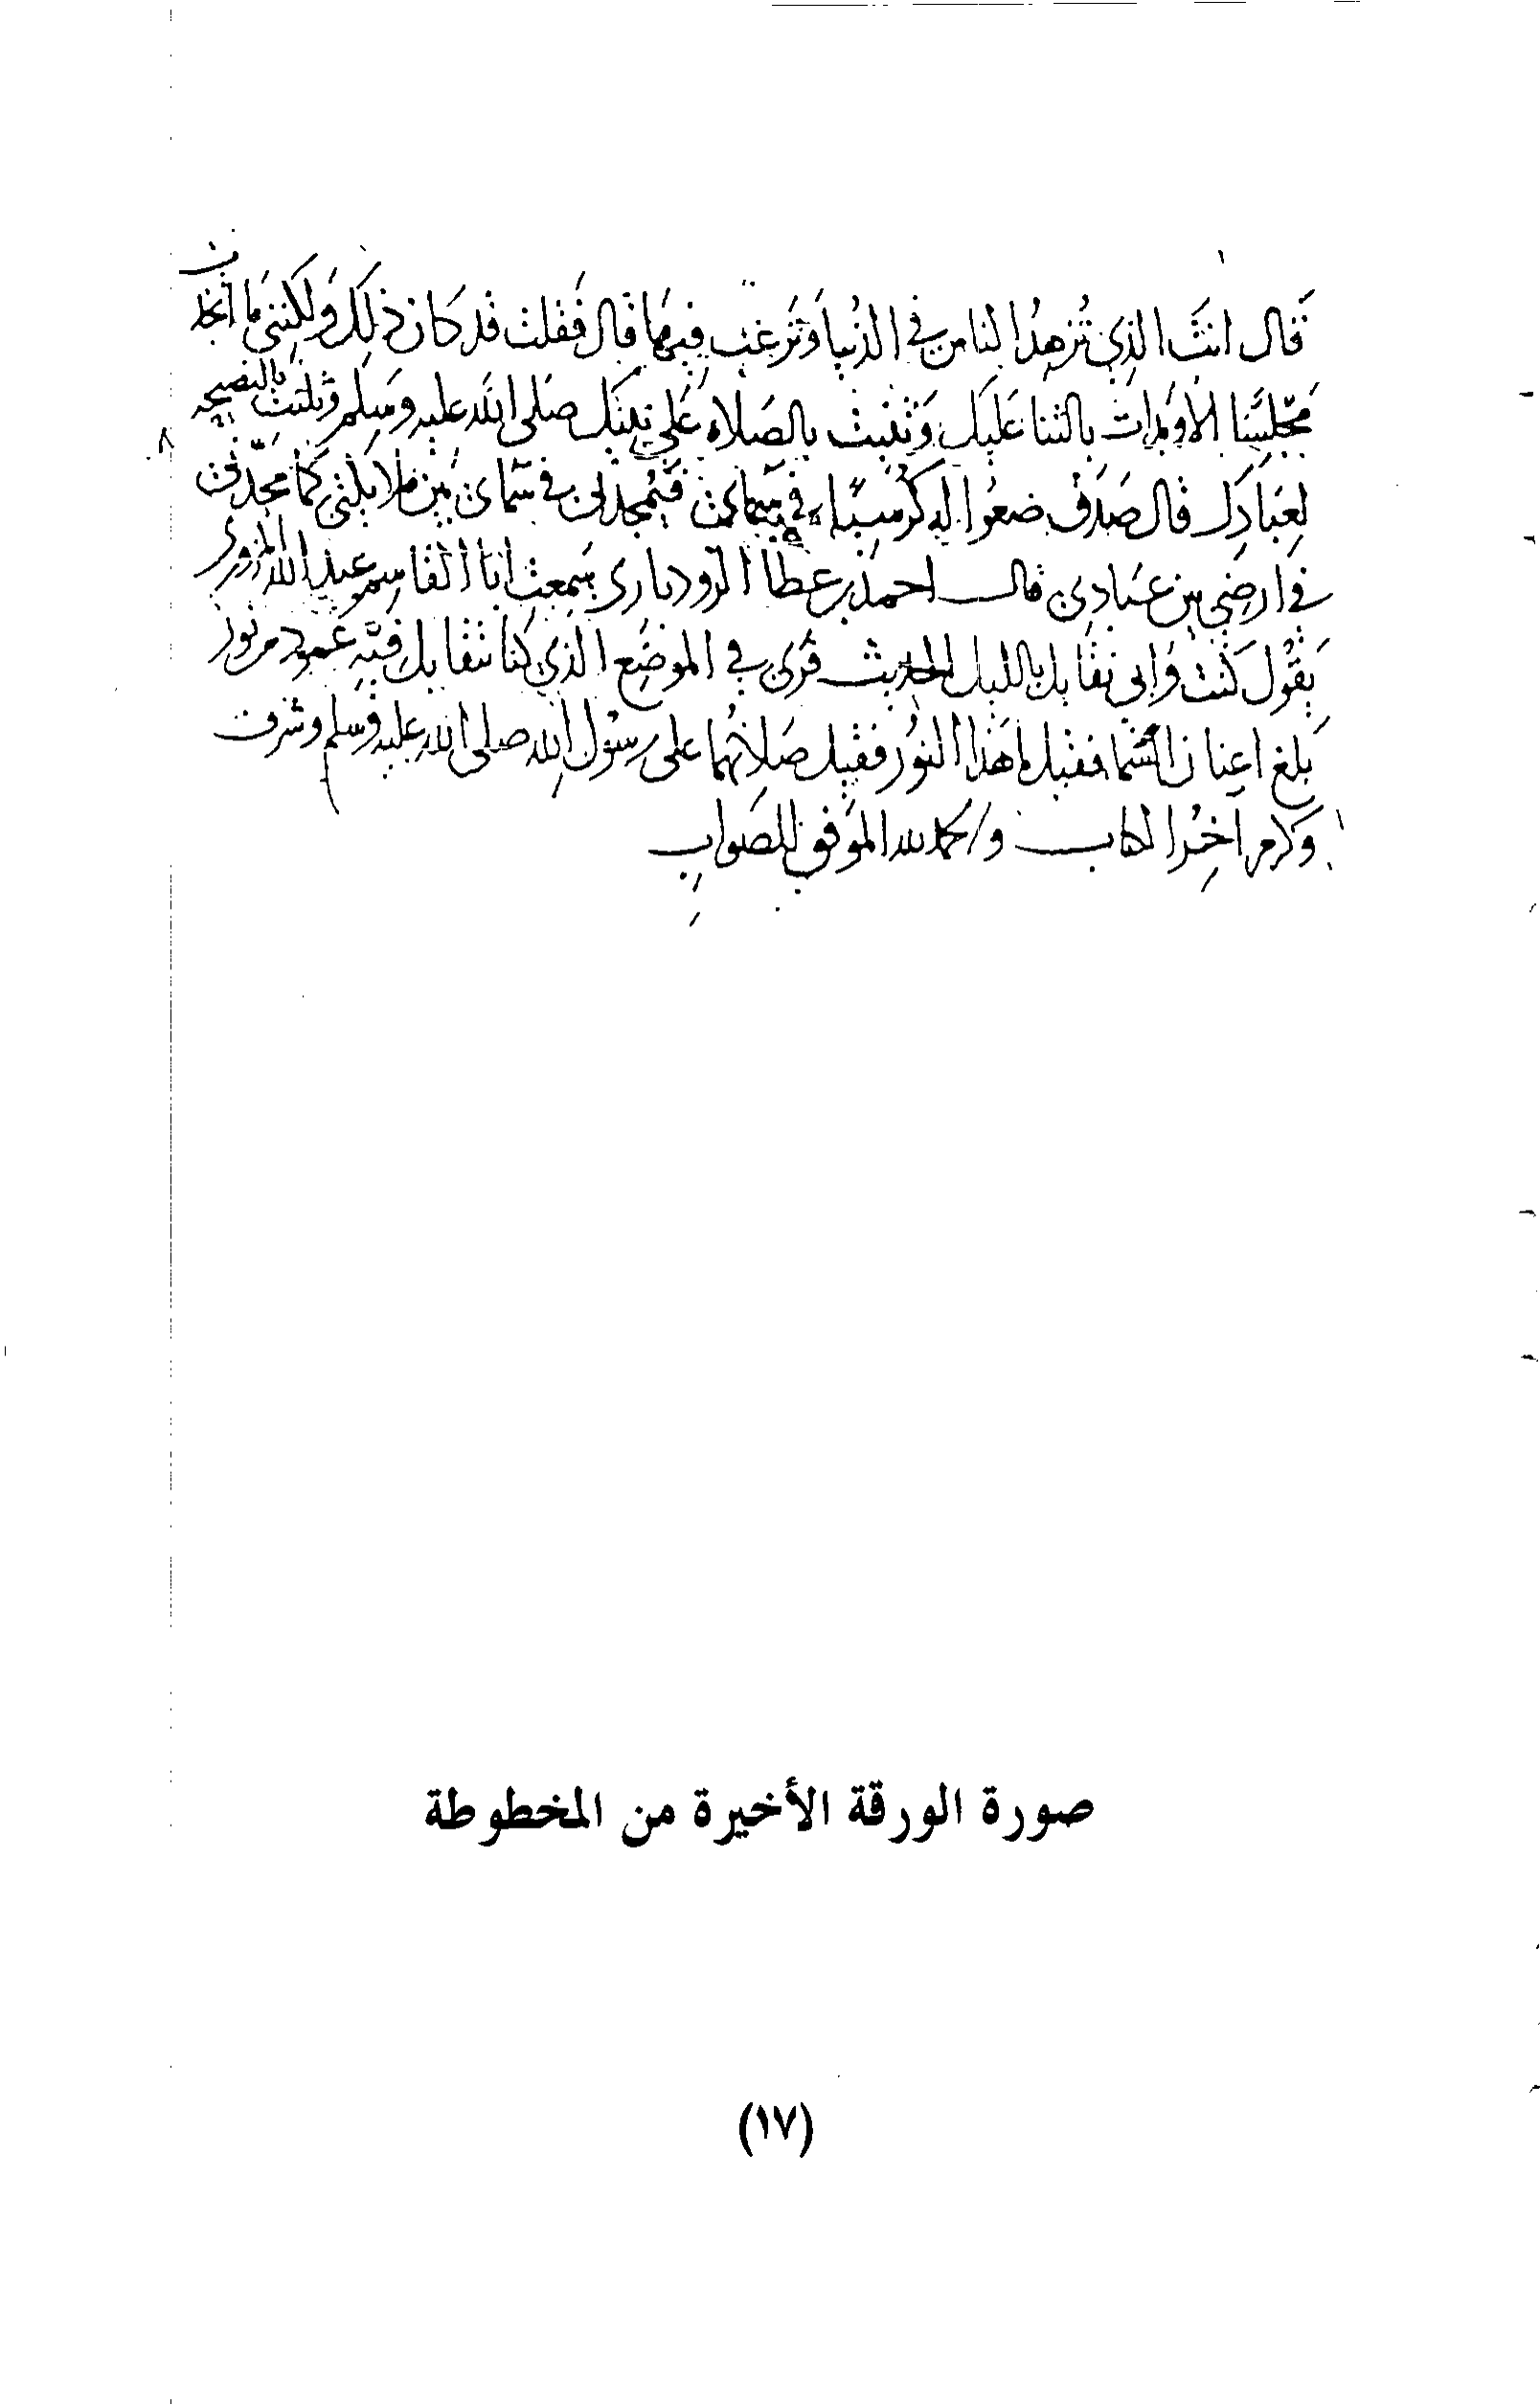 قال انت الذي تزهد الناس في الدنيا وترغب فيها قال فقلت قد كان ذلك ولكنني ما اتخذت
مجلسًا الا وبدات بالثنا عليك وثنيت بالصلاة على نبيك صلى الله عليه وسلم وثلثت بالنصيحه
لعبادك قال صدق ضعوا له كرسيًا في سمائي فيمجدني في سمائي بين ملايكتي كما مجدني
في ارضي بين عبادي قال احمد بن عطا الروذباري سمعت ابا القاسم عبد الله المروزي
يقول كنت وابي نقابل بالليل الحديث فرئ في الموضع الذي كنا نتقابل فيه عمود من نور
بلغ اعنان السما فقيل ما هذا النور فقيل صلاتهما على رسول الله صلى الله عليه وسلم وشرف
وكرم اخر الكتاب والحمد لله الموفق للصواب
صورة الورقة الأخيرة من المخطوطة
(١٧)